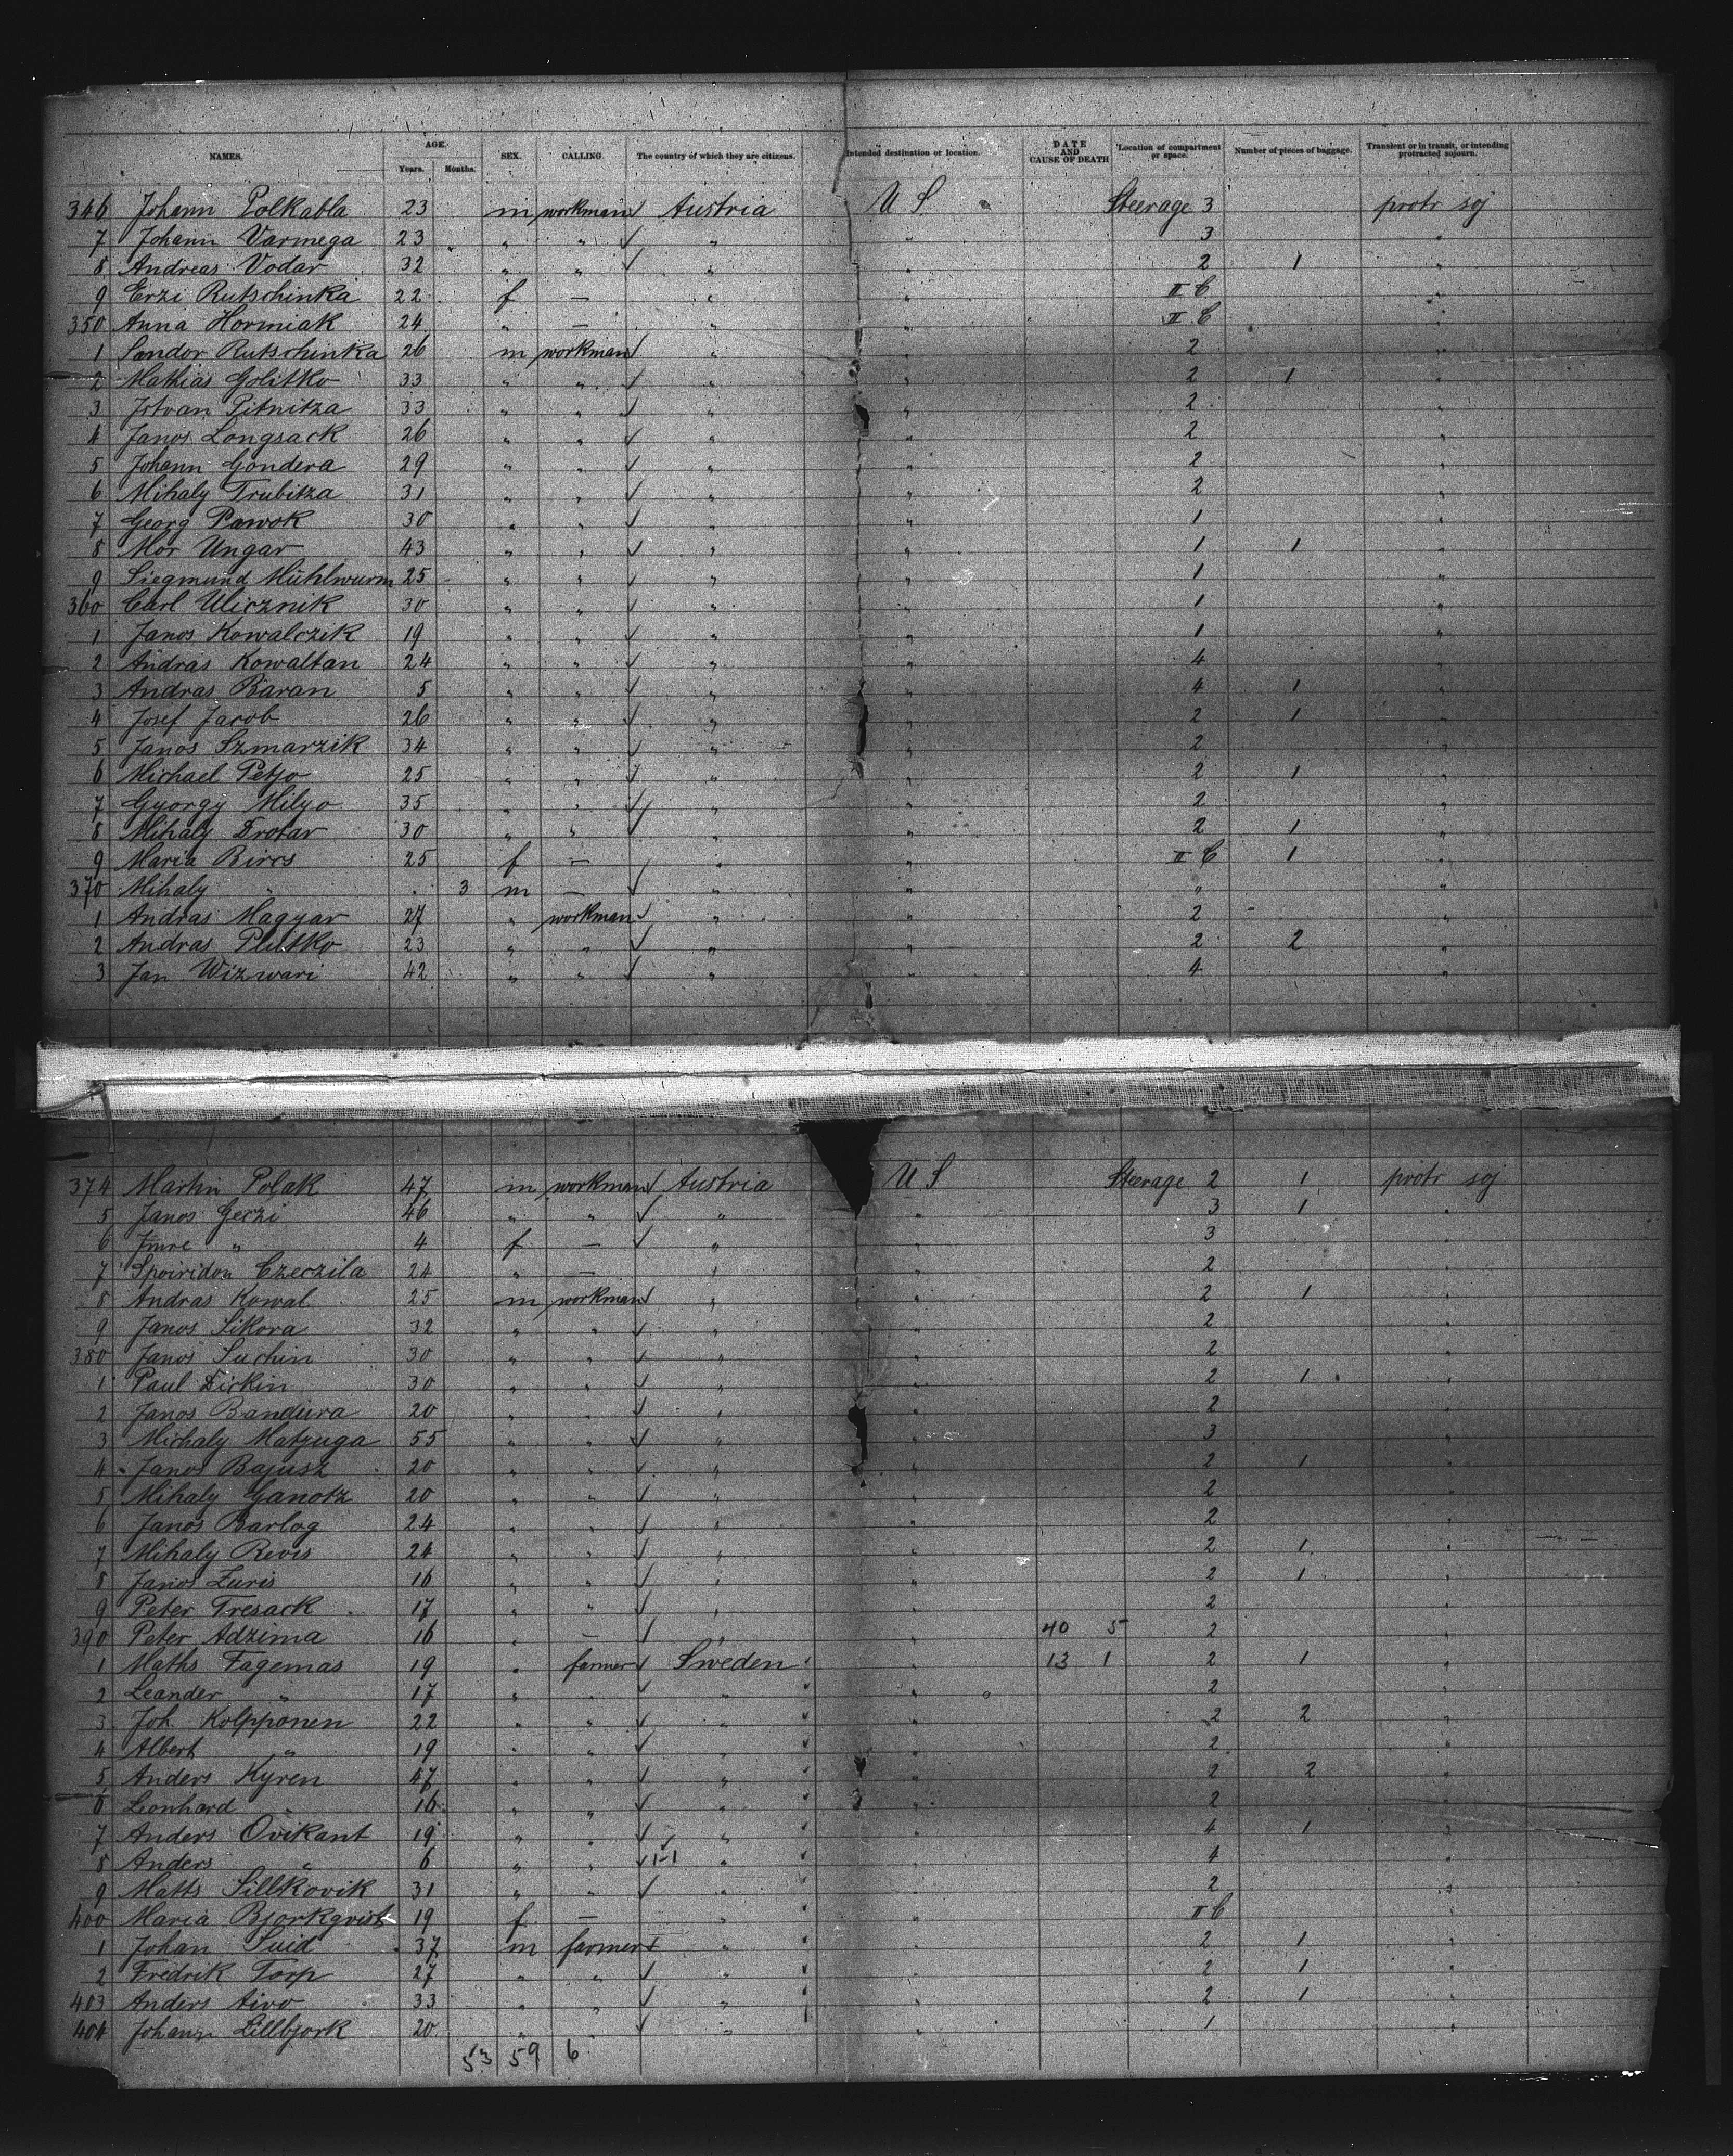 NAMES. AGE. Years. Months. SEX. CALLING. The country of which they are citizens. Intended destination or location. DATE AND CAUSE OF DEATH Location of compartment or space. Number of pieces of baggage. Transient or in transit, or intending protracted sojourn.
346 Johann Polkabla 23 m workman Austria U S Steerage 3 protr soj
7 Johann Varmega 23 " " " " 3 "
8 Andreas Vodar 32 " " " " 2 1 "
9 Erzi Rutschinka 22 f — " " II C "
350 Anna Horniak 24 " — " " II C "
1 Sandor Rutschinka 26 m workman " " 2 "
2 Mathias Golitko 33 " " " " 2 1 "
3 Istvan Pitnitza 33 " " " " 2 "
4 Janos Longsack 26 " " " " 2 "
5 Johann Gondera 29 " " " " 2 "
6 Mihaly Trubitza 31 " " " " 2 "
7 Georg Pawok 30 " " " " 1 "
8 Mor Ungar 43 " " " " 1 1 "
9 Siegmund Mühlwurm 25 " " " " 1 "
360 Carl Ulicznik 30 " " " " 1 "
1 Janos Kowalczik 19 " " " " 1 "
2 Andras Kowaltan 24 " " " " 4 "
3 Andras Baran 5 " " " " 4 1 "
4 Josef Jacob 26 " " " " 2 1 "
5 Janos Szmarzik 34 " " " " 2 "
6 Michael Petjo 25 " " " " 2 1 "
7 Gyorgy Milyo 35 " " " " 2 "
8 Mihaly Drotar 30 " " " " 2 1 "
9 Maria Bircs 25 f — " " II C 1 "
370 Mihaly " 3 m — " " " "
1 Andras Magyar 27 " workman " " 2 "
2 Andras Plutko 23 " " " " 2 2 "
3 Jan Wizwari 42 " " " " 4 "
374 Martin Polak 47 m workman Austria U S Steerage 2 1 protr soj
5 Janos Geczi 46 " " " " 3 1 "
6 Imre " 4 f — " " 3 "
7 Spoiridon Czeczila 24 " — " " 2 "
8 Andras Kowal 25 m workman " " 2 1 "
9 Janos Sikora 32 " " " " 2 "
380 Janos Suchin 30 " " " " 2 "
1 Paul Dickin 30 " " " " 2 1 "
2 Janos Bandura 20 " " " " 2 "
3 Michaly Matzuga 55 " " " " 3 "
4 Janos Bajusz 20 " " " " 2 1 "
5 Mihaly Ganotz 20 " " " " 2 "
6 Janos Barlog 24 " " " " 2 "
7 Mihaly Revis 24 " " " " 2 1 "
8 Janos Zuris 16 " " " " 2 1 "
9 Peter Tresack 17 " " " " 2 "
390 Peter Adzima 16 " — " " 40 5 2 "
1 Maths Fagernas 19 " farmer Sweden " 13 1 2 1 "
2 Leander " 17 " " " " 2 "
3 Joh. Kolpponen 22 " " " " 2 2 "
4 Albert " 19 " " " " 2 "
5 Anders Kyren 47 " " " " 2 2 "
6 Leonhard " 16 " " " " 2 "
7 Anders Ovikant 19 " " " " 4 1 "
8 Anders " 6 " " 1-1 " " 4 "
9 Matts Sillkovik 31 " " " " 2 "
400 Maria Bjorkqvist 19 f — " " II C "
1 Johan Suid 37 m farmer " " 2 1 "
2 Fredrik Torp 27 " " " " 2 1 "
403 Anders Aivo 33 " " " " 2 1 "
404 Johann Lillbjork 20 " — " " 1 "
53 59 6